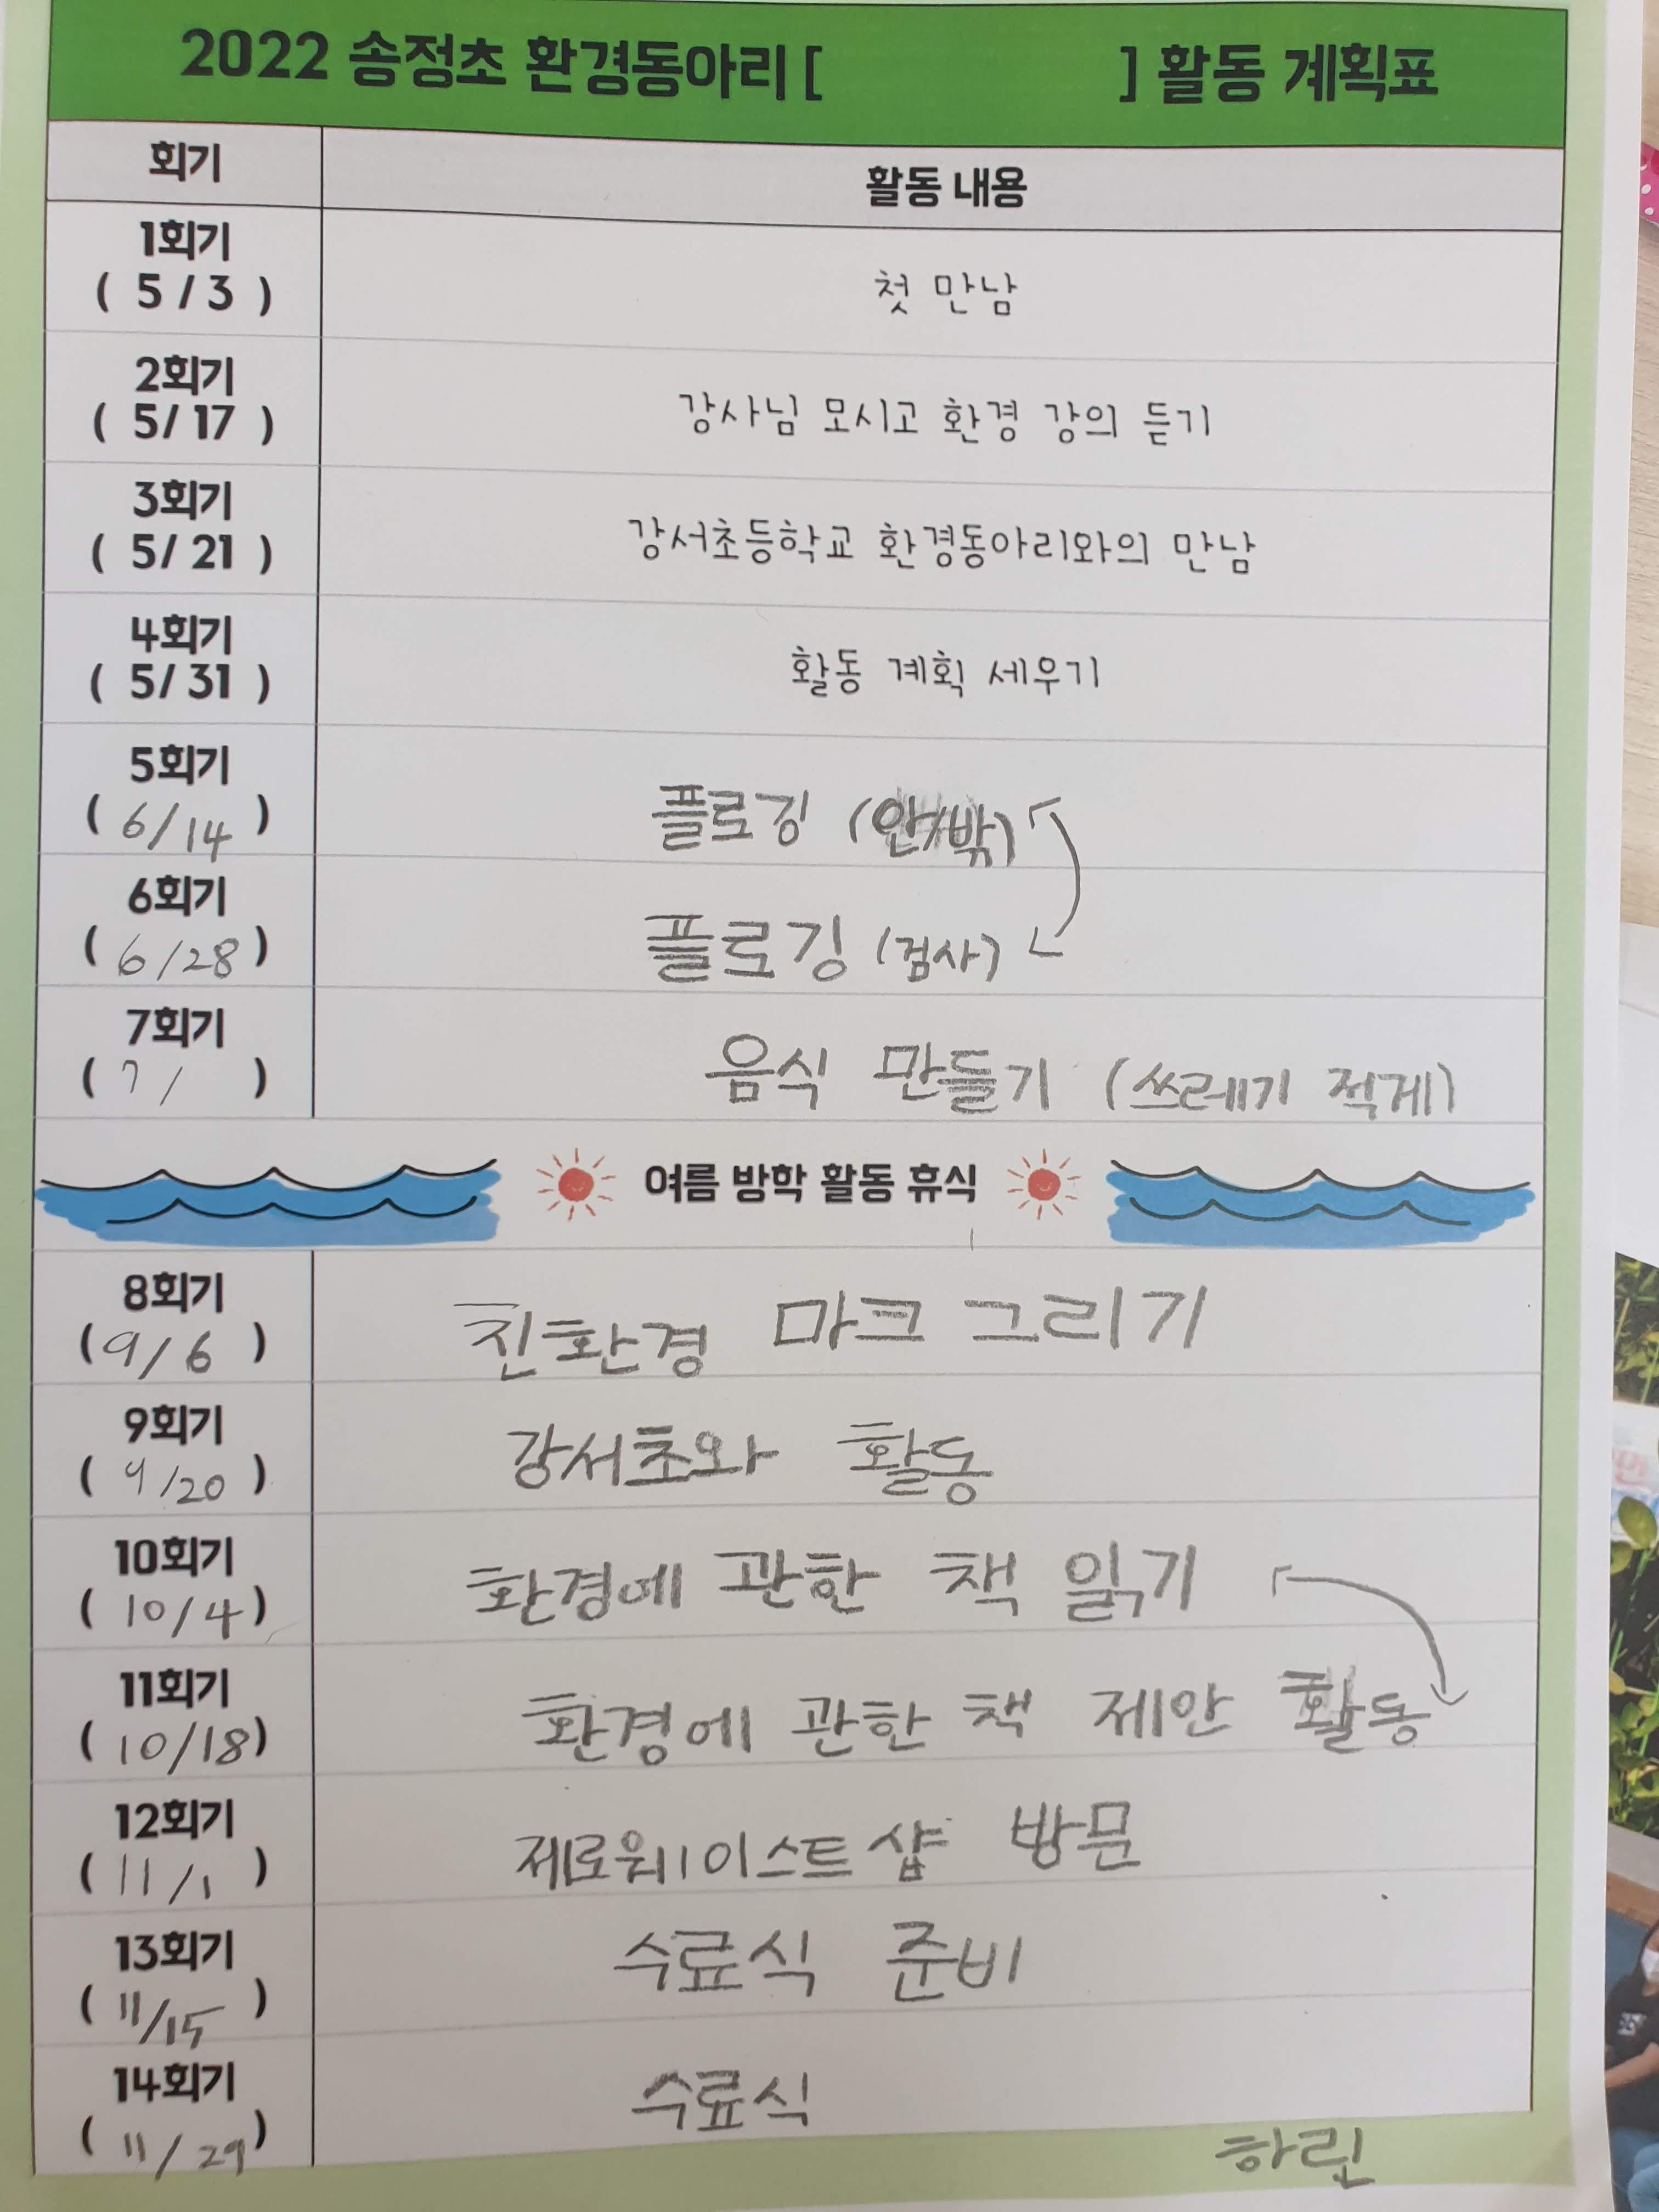 2022 송정초 환경동아리 [ ] 활동 계획표
회기
활동 내용
1회기
( 5 / 3 )
첫 만남
2회기
( 5/ 17 )
강사님 모시고 환경 강의 듣기
3회기
( 5/ 21 )
강서초등학교 환경동아리와의 만남
4회기
( 5/ 31 )
활동 계획 세우기
5회기
( 6/14 )
플로깅 (안/밖)
6회기
( 6/28 )
플로깅 (검사)
7회기
( 7/ )
음식 만들기 (쓰레기 적게)
여름 방학 활동 휴식
8회기
( 9/6 )
친환경 마크 그리기
9회기
( 9/20 )
강서초와 활동
10회기
( 10/4 )
환경에 관한 책 읽기
11회기
( 10/18 )
환경에 관한 책 제안 활동
12회기
( 11/1 )
제로웨이스트 샵 방문
13회기
( 11/15 )
수료식 준비
14회기
( 11/29 )
수료식
하린